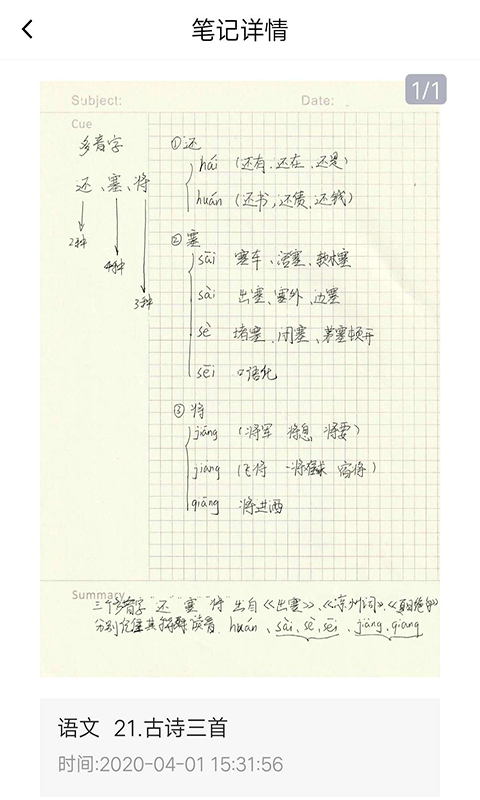 笔记详情
1/1
Subject:
Date:
Cue
多音字
还、塞、将
2种
4种
3种
①还
hái (还有、还在、还是)
huán (还书,还债、还钱)
②塞
sāi 塞车、活塞、软木塞
sài 出塞、塞外、边塞
sè 堵塞、闭塞、茅塞顿开
sēi 口语化
③将
jiāng (将军 将息 将要)
jiàng (飞将 一将难求 富将)
qiāng 将进酒
Summary
三个多音字"还""塞""将"出自《出塞》、《凉州词》、
分别 其 读音. huán、sài、sè、sēi、jiāng、qiang
语文 21.古诗三首
时间:2020-04-01 15:31:56